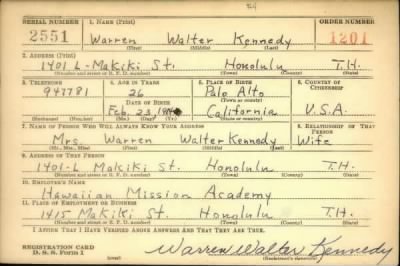 SERIAL NUMBER 1. NAME (Print) ORDER NUMBER
2551 Warren Walter Kennedy 1201
(First) (Middle) (Last)
2. ADDRESS (Print)
1401 L-Makiki St. Honolulu T.H.
(Number and street or R. F. D. number) (Town) (County) (State)
3. TELEPHONE 4. AGE IN YEARS 5. PLACE OF BIRTH 6. COUNTRY OF CITIZENSHIP
947781 26 Palo Alto
DATE OF BIRTH (Town or county)
Feb. 23 California U.S.A.
(Exchange) (Number) (Mo.) (Day) (Yr.) (State or country)
7. NAME OF PERSON WHO WILL ALWAYS KNOW YOUR ADDRESS 8. RELATIONSHIP OF THAT PERSON
Mrs. Warren Walter Kennedy Wife
(Mr., Mrs., Miss) (First) (Middle) (Last)
9. ADDRESS OF THAT PERSON
1401-L Makiki St. Honolulu T.H.
(Number and street or R. F. D. number) (Town) (County) (State)
10. EMPLOYER'S NAME
Hawaiian Mission Academy
11. PLACE OF EMPLOYMENT OR BUSINESS
1415 Makiki St. Honolulu T.H.
(Number and street or R. F. D. number) (Town) (County) (State)
I AFFIRM THAT I HAVE VERIFIED ABOVE ANSWERS AND THAT THEY ARE TRUE.
REGISTRATION CARD
D. S. S. Form 1 (over) Warren Walter Kennedy
(Registrant's signature)